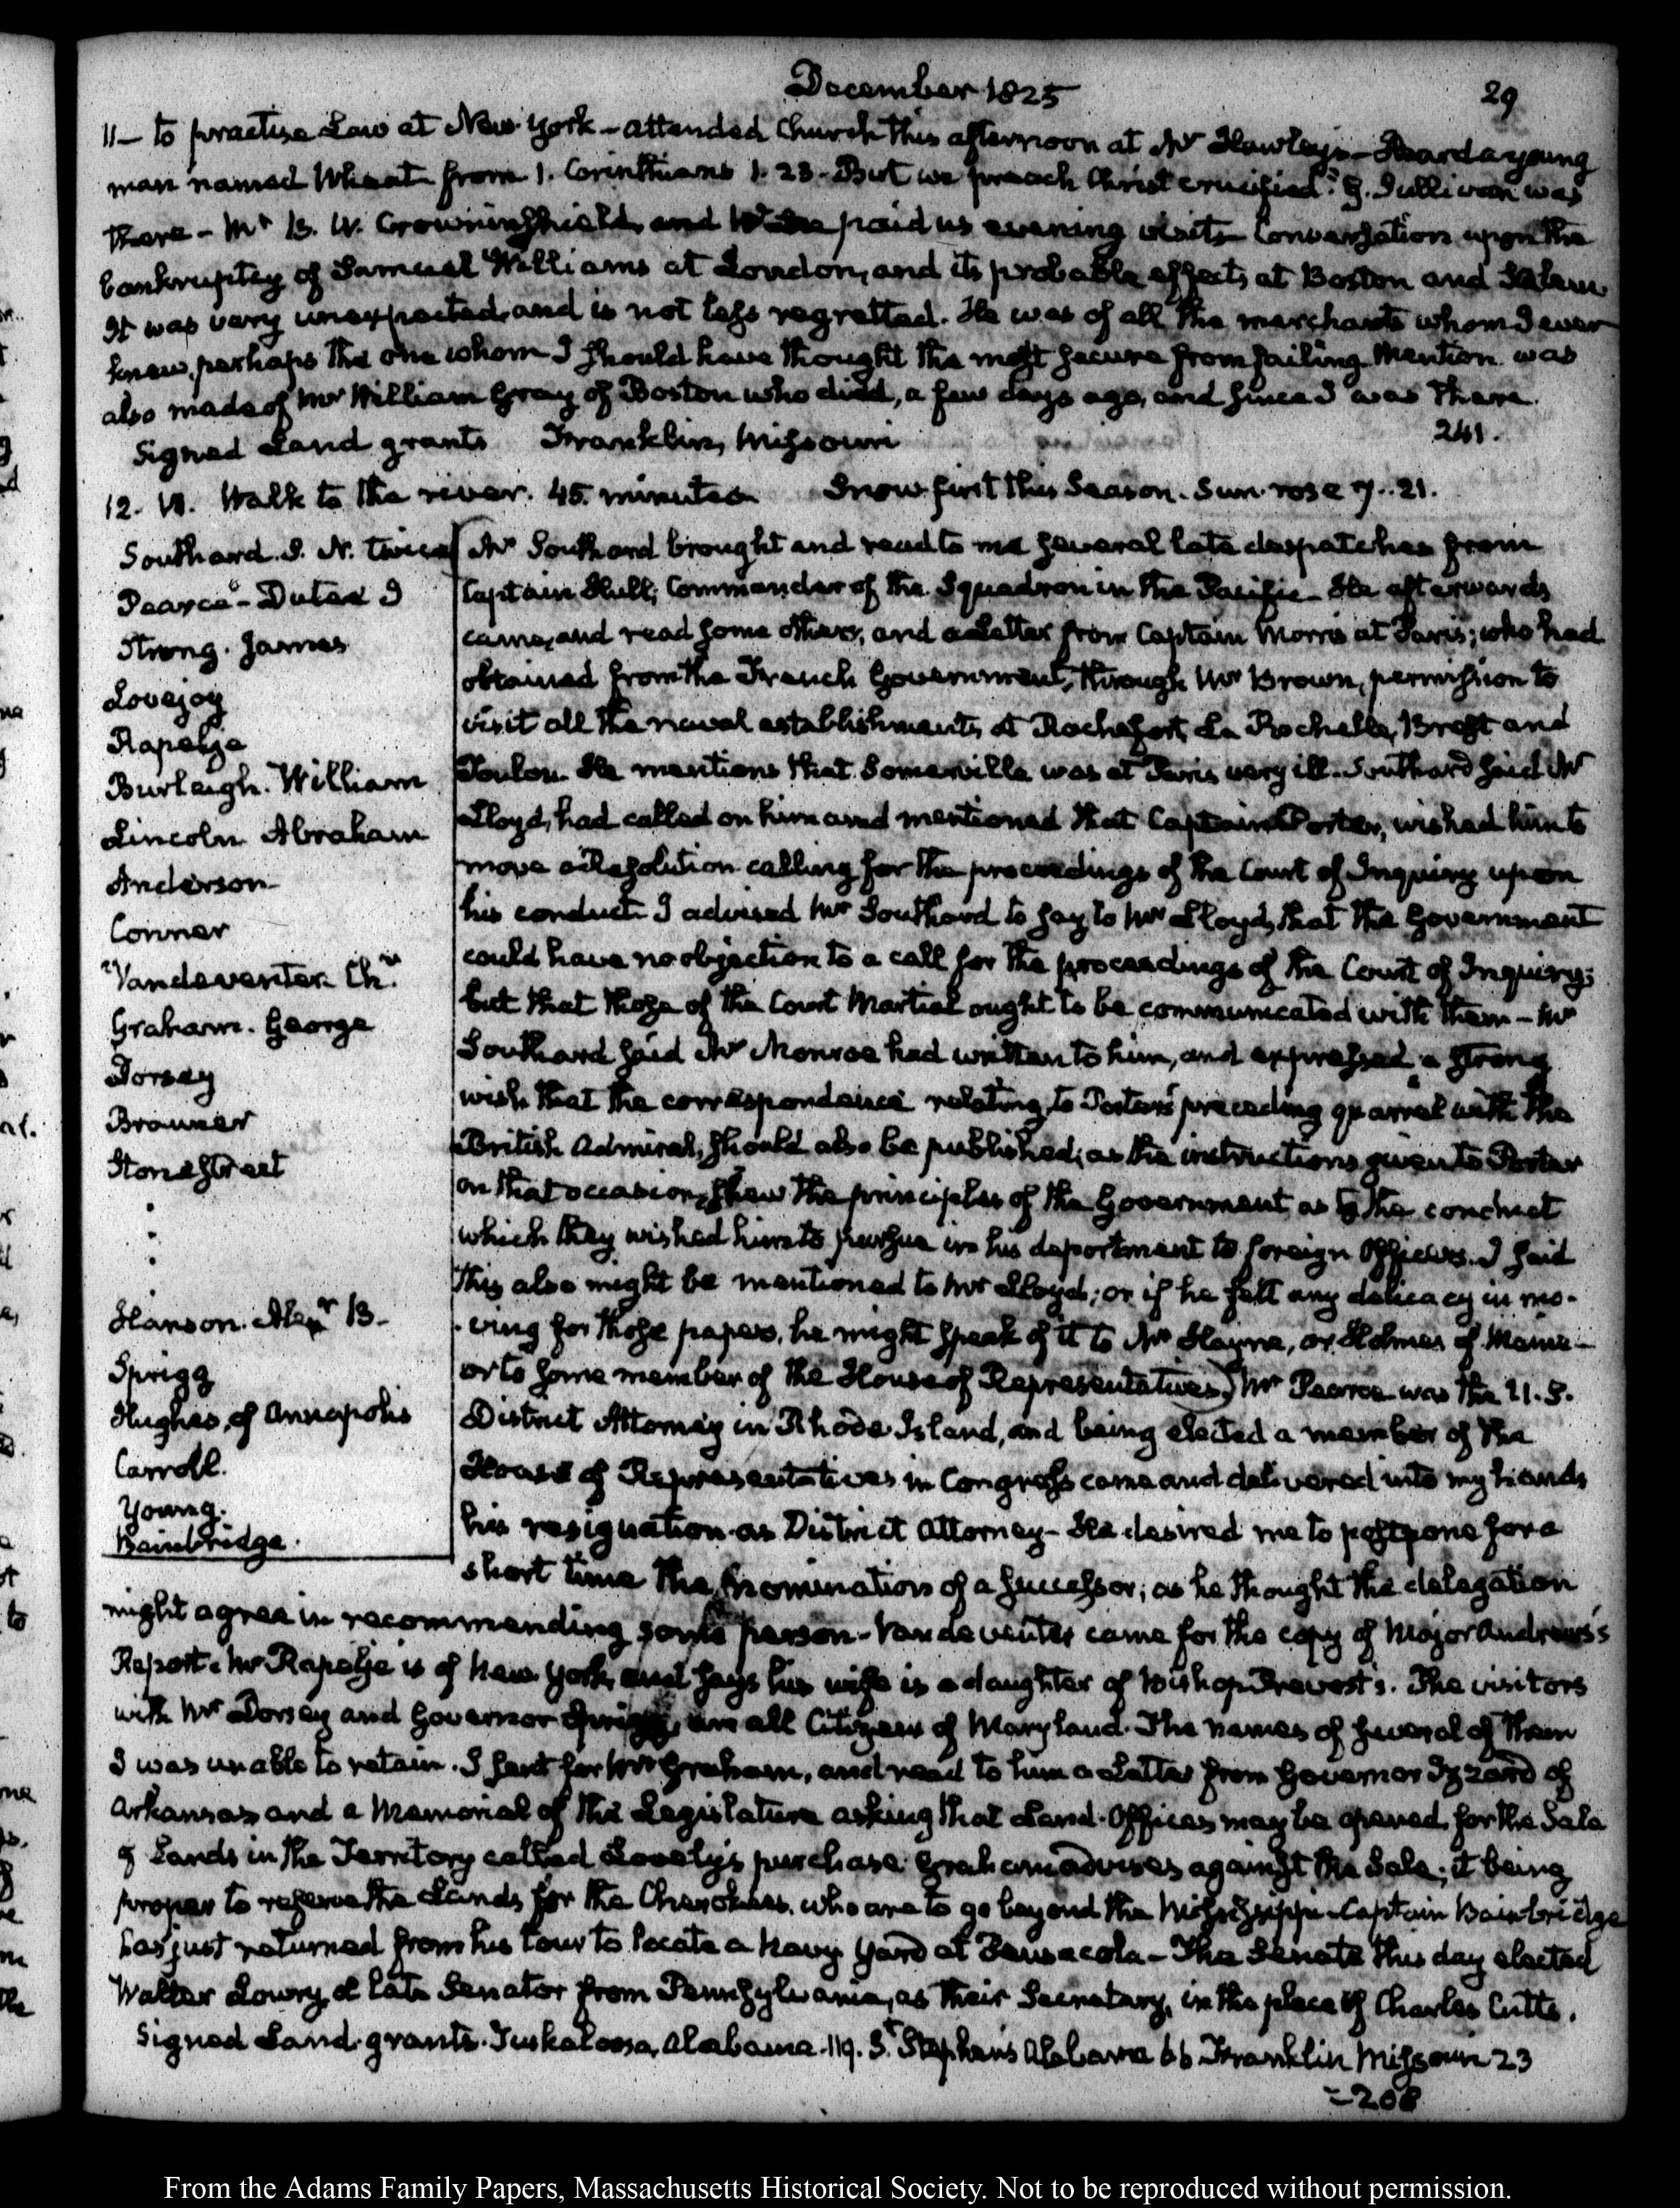 December 1825
29
11 — to practise Law at New-York — attended Church this afternoon at Mr Hawley's — Heard a young
man named Wheat from 1. Corinthians 1. 23. But we preach Christ crucified. G. Sullivan was
there — Mr B. W. Crowninshield, and paid us evening visits Conversation upon the
bankruptcy of Samuel Williams at London, and its probable effects at Boston and Salem
It was very unexpected, and is not less regretted. He was of all the merchants whom I ever
knew, perhaps the one whom I should have thought the most secure from failing. Mention was
also made of Mr William Gray of Boston who died, a few days ago, and since I was there.
Signed Land grants Franklin, Missouri 241.
12. VI. Walk to the river. 45. minutes Snow first this Season. Sun rose 7..21.
Southard. S. N. twice
Pearce — Dutee J
Strong. James
Lovejoy
Rapelje
Burleigh. William
Lincoln Abraham
Anderson
Conner
Vandeventer Chr
Graham. George
Dorsey
Brawner
Stonestreet
Hanson. Alexr B.
Sprigg
Hughes, of Annapolis
Carroll.
Young.
Bainbridge.
Mr Southard brought and read to me several late despatches from
Captain Hull, Commander of the Squadron in the Pacific — He afterwards
came, and read some others, and a Letter from Captain Morris at Paris; who had
obtained from the French Government, through Mr Brown, permission to
visit all the naval establishments at Rochefort, La Rochelle, Brest and
Toulon. He mentions that Somerville was at Paris very ill. Southard said Mr
Lloyd, had called on him and mentioned that Captain Porter, wished him to
move a Resolution calling for the proceedings of the Court of Inquiry upon
his conduct. I advised Mr Southard to say to Mr Lloyd, that the Government
could have no objection to a call for the proceedings of the Court of Inquiry;
but that those of the Court Martial ought to be communicated with them — Mr
Southard said Mr Monroe had written to him, and expressed a strong
wish that the correspondence relating to Porter's preceding quarrel with the
British Admiral, should also be published; as the instructions given to Porter
on that occasion, shew the principles of the Government as to the conduct
which they wished him to pursue in his deportment to foreign Officers. I said
this also might be mentioned to Mr Lloyd; or if he felt any delicacy in mo-
-ving for those papers, he might speak of it to Mr Hayne, or Holmes of Maine —
or to some member of the House of Representatives) Mr Pearce was the U.S.
District Attorney in Rhode Island, and being elected a member of the
House of Representatives in Congress came and delivered into my hands
his resignation as District Attorney — He desired me to postpone for a
short time the nomination of a successor; as he thought the delegation
might agree in recommending some person — Vandeventer came for the copy of Major Andrews's
Report. Mr Rapelje is of New York, and says his wife is a daughter of Bishop Prevost's. The visitors
with Mr Dorsey and Governor Sprigg, are all Citizens of Maryland. The names of several of them
I was unable to retain. I sent for Mr Graham, and read to him a Letter from Governor Izzard of
Arkansas and a Memorial of the Legislature asking that Land-Offices may be opened, for the Sale
of Lands in the Territory called Lovely's purchase. Graham advises against the Sale; it being
proper to reserve the Lands for the Cherokees. who are to go beyond the Mississippi — Captain Bainbridge
has just returned from his tour to locate a Navy Yard at Pensacola — The Senate this day elected
Walter Lowry, a late Senator from Pennsylvania, as their Secretary, in the place of Charles Cutts.
Signed Land-grants. Tuskaloosa, Alabama. 119. St Stephen's Alabama 66 Franklin Missouri 23
=208
From the Adams Family Papers, Massachusetts Historical Society. Not to be reproduced without permission.